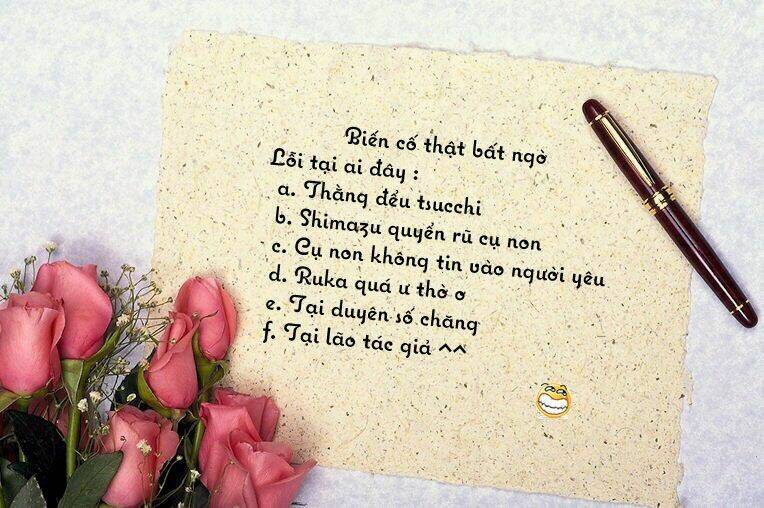 Biến cố thật bất ngờ
Lỗi tại ai đây :
a. Thằng đểu tsucchi
b. Shimazu quyển rũ cụ non
c. Cụ non không tin vào người yêu
d. Ruka quá ư thờ ơ
e. Tại duyên số chăng
f. Tại lão tác giả ^^